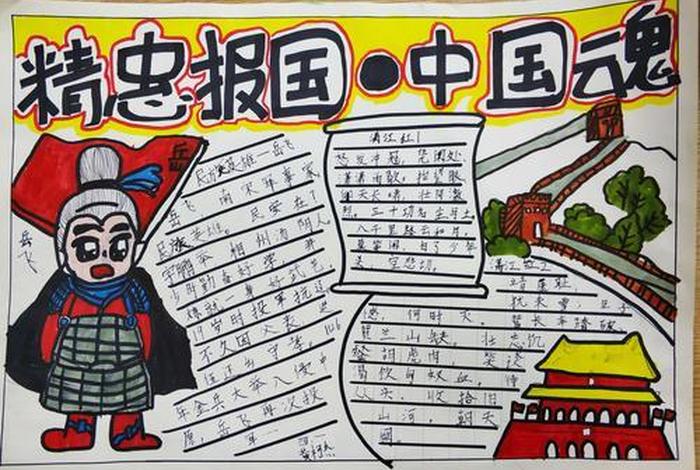 精忠报国·中国魂
岳
岳飞
民族英雄—岳飞
岳飞 南宋军事家
民族英雄。
字鹏举 相州汤阴人
少时勤奋好学,并
炼就一身好武艺
19岁时投军抗辽
不久因父丧,退
伍还乡守孝。1126
年金兵大举入侵中
原,岳飞再次投
军…
满江红1
怒发冲冠,凭阑处、
潇潇雨歇。抬望眼
仰天长啸,壮怀激
烈。三十功名尘与土
八千里路云和月。
莫等闲,白了少年
头,空悲切。
满江红2
靖康耻,
犹未雪,臣子
恨,何时灭。驾长车踏破、
贺兰山缺。壮志饥
餐胡虏肉,笑谈
渴饮匈奴血。待
从头,收拾旧
山河,朝天
阙。